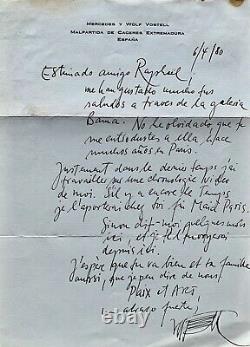 MERCEDES Y WOLF VOSTELL
MALPARTIDA DE CACERES EXTREMADURA
ESPAÑA
6/4/80
Estimado amigo Raphael!
me han gustado mucho tus
saludos a traves de la galeria
No he olvidado que tu
me entrodustes a ella hace
muchos años en Paris.
Justement dans le dernier temps j'ai
travailler sur une chronologie video
de moi. S'il y a encore de temps
je l'aporterai chez toi Paris.
Sinon dit-moi quelques mots
ici, et je t'
depuis ici.
J'espère que tu va bien et ta famille
aussi, que je peu dire de nous.
Paix et ART
abrazo fuerte!